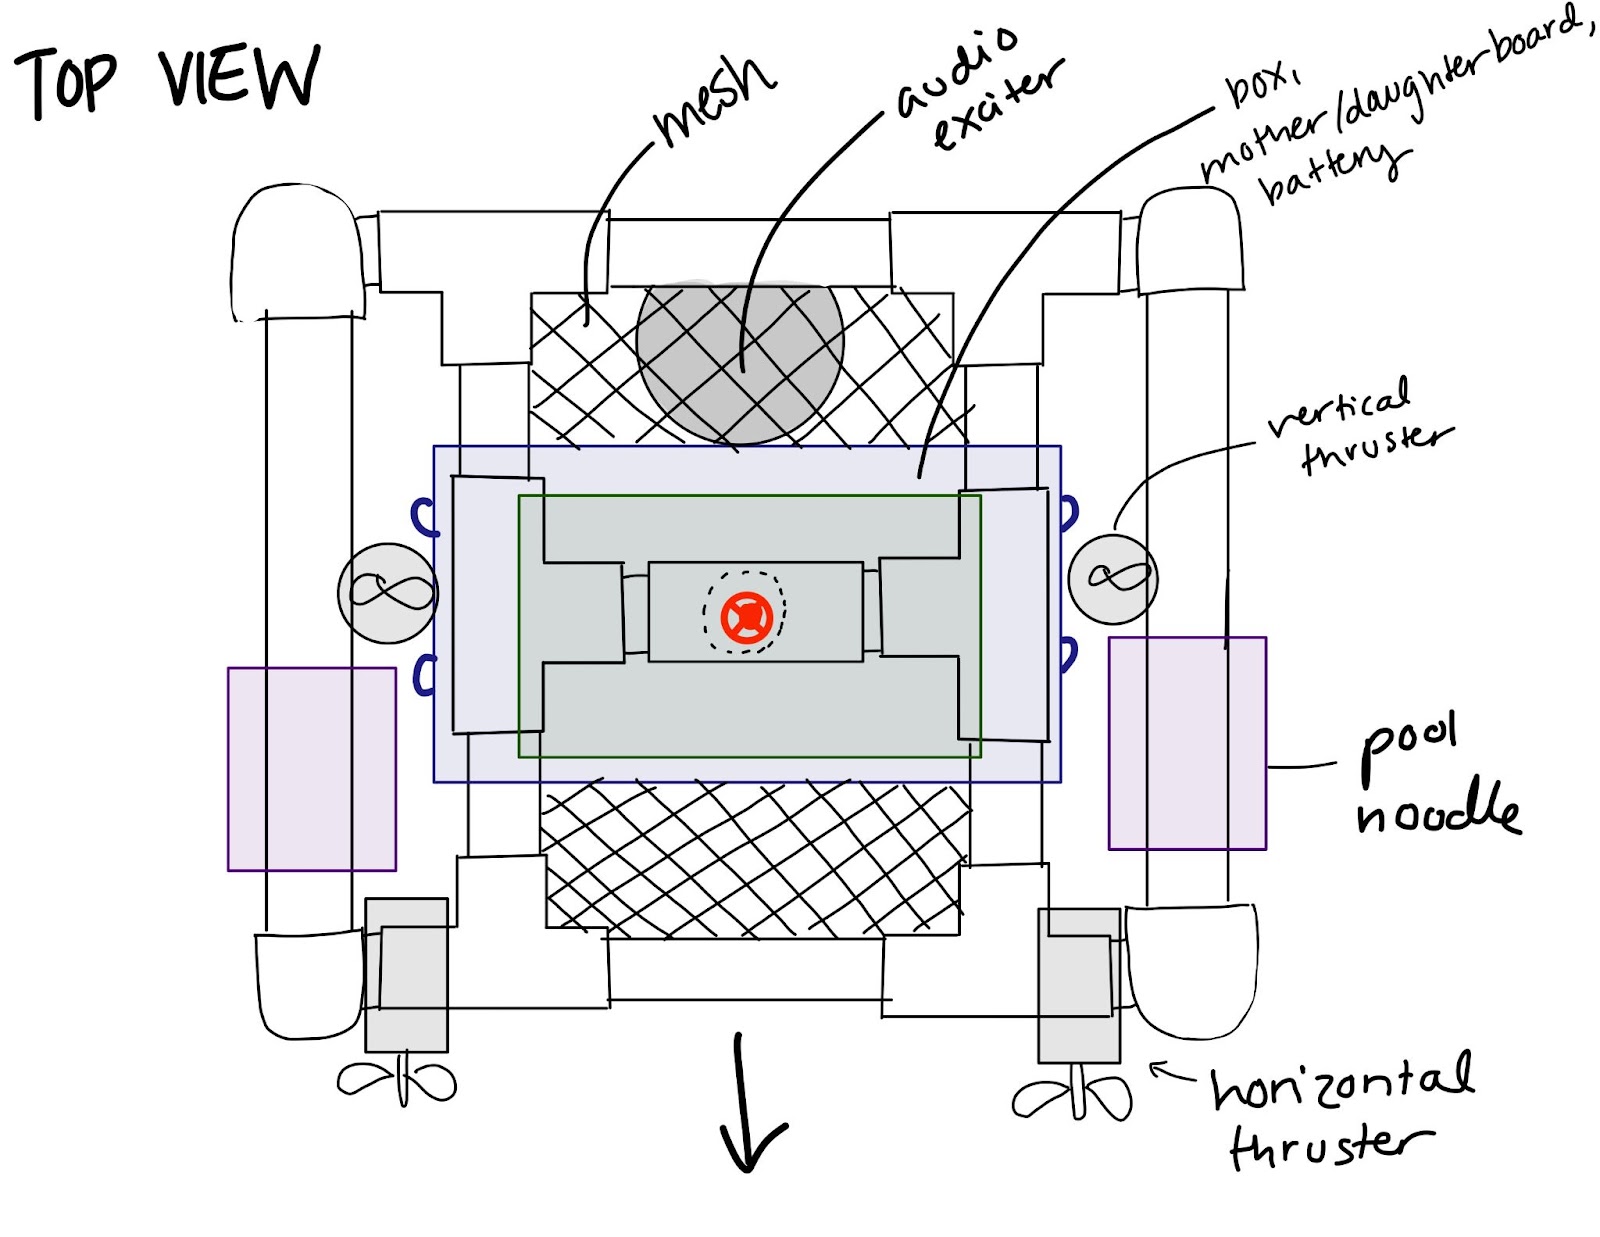 TOP VIEW
mesh
audio
exciter
box,
mother/daughterboard,
battery
vertical
thruster
pool
noodle
horizontal
thruster